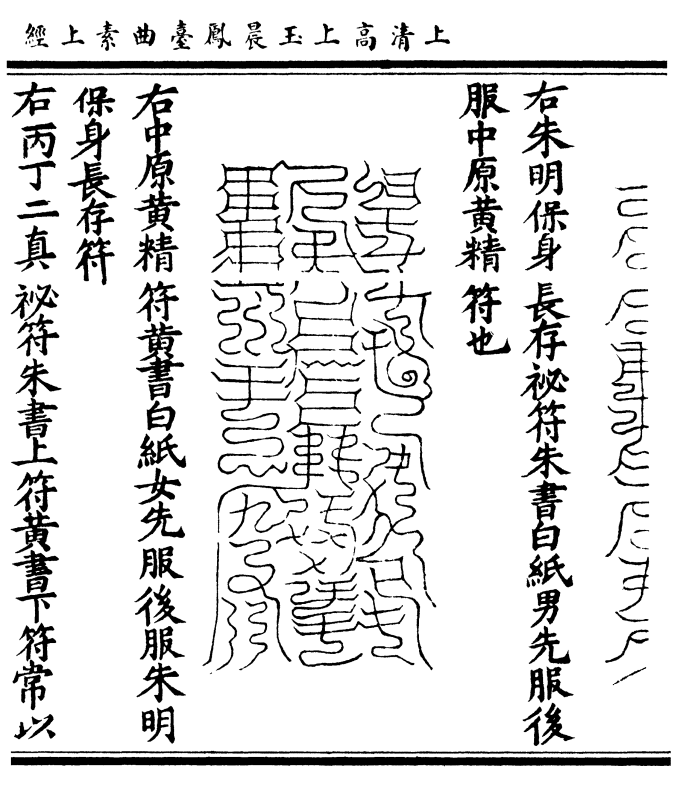 上清高上玉晨鳳臺曲素上經
右朱明保身長存祕符朱書白紙男先服後
服中原黄精符也
右中原黄精符黄書白紙女先服後服朱明
保身長存符
右丙丁二真祕符朱書上符黄書下符常以